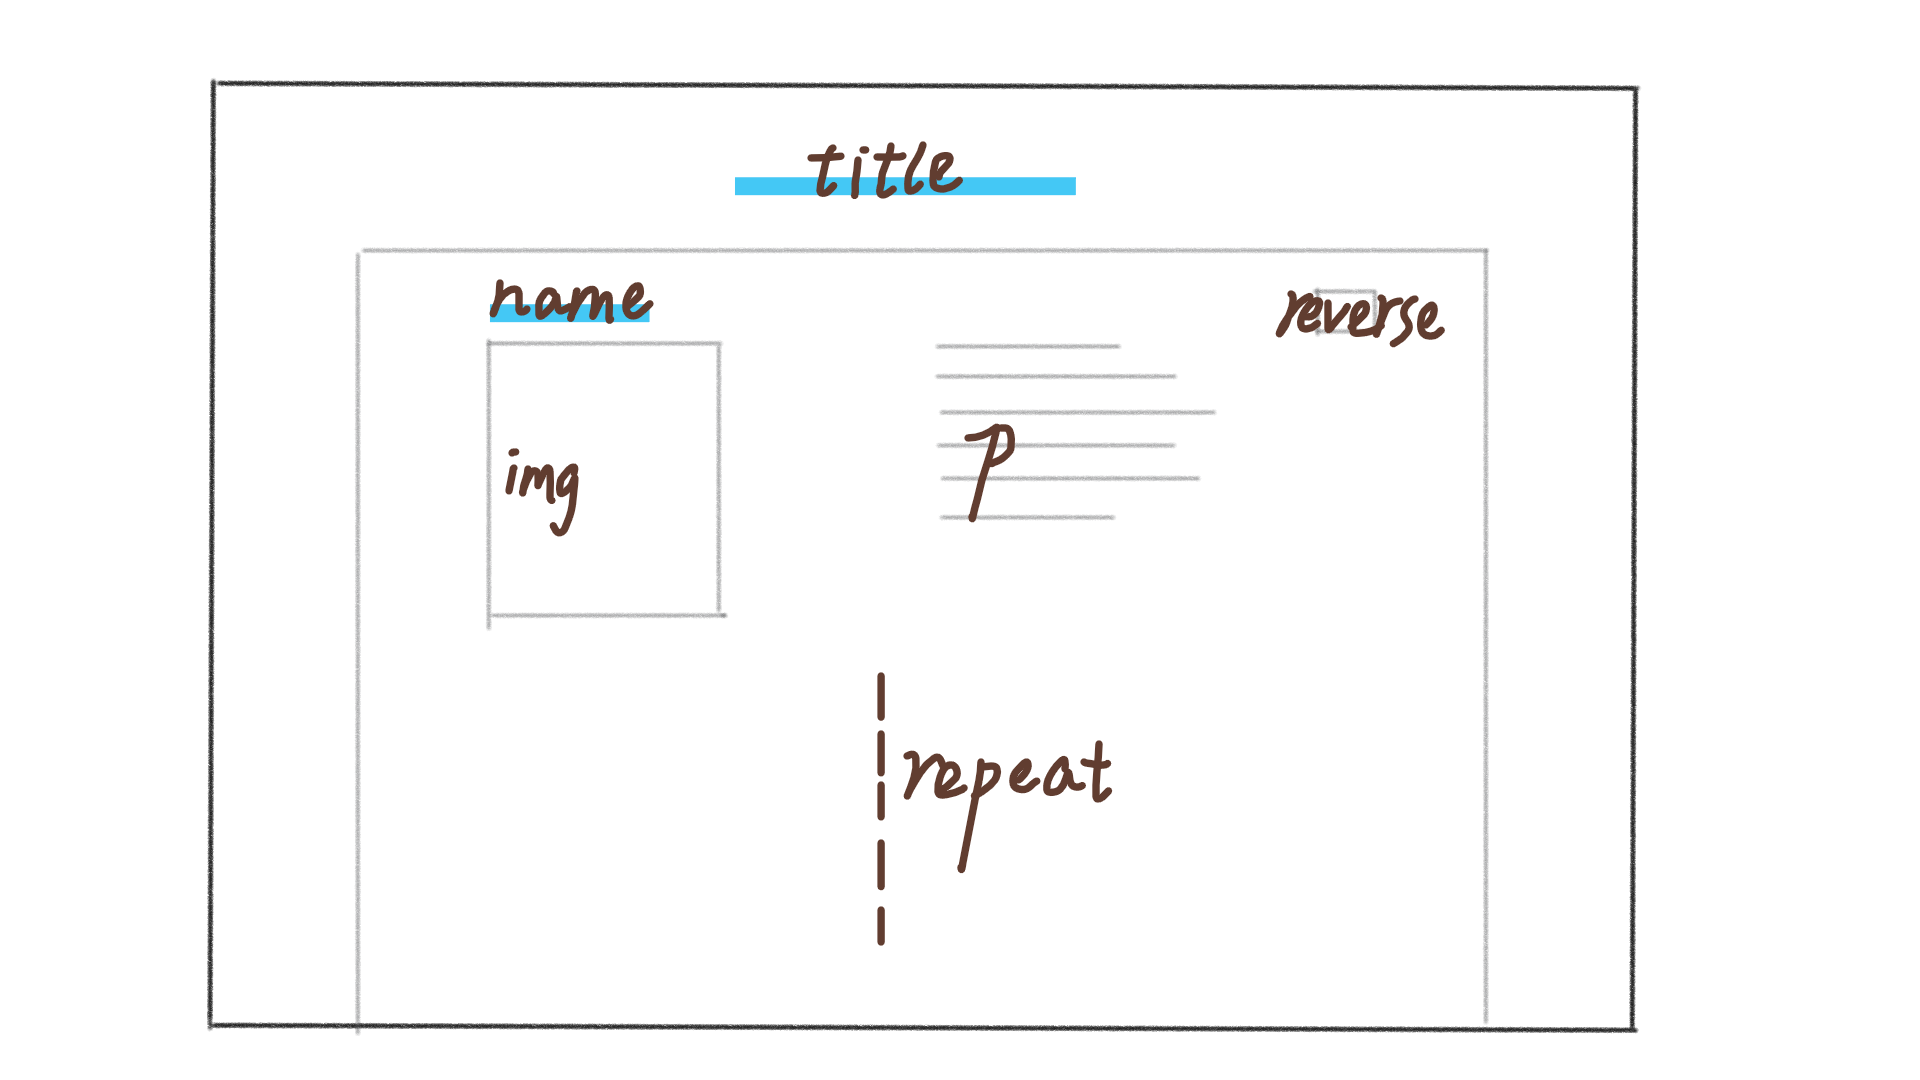 title
name
reverse
img
p
repeat